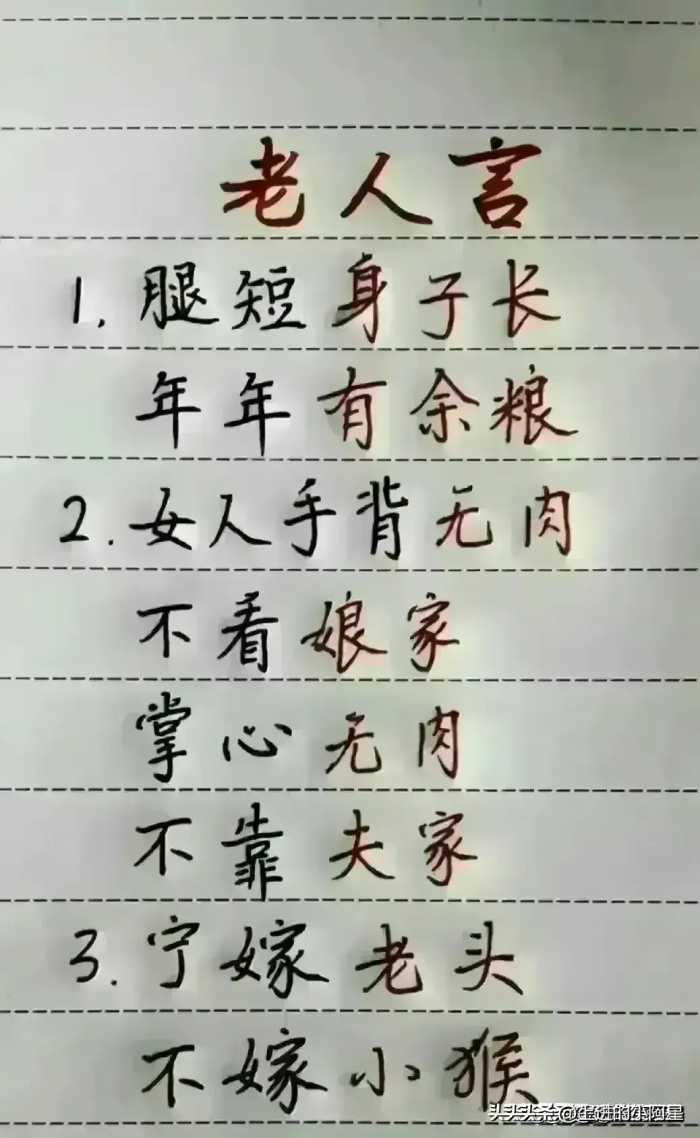 老人言
1. 腿短身子长
年年有余粮
2. 女人手背无肉
不看娘家
掌心无肉
不靠夫家
3. 宁嫁老头
不嫁小猴